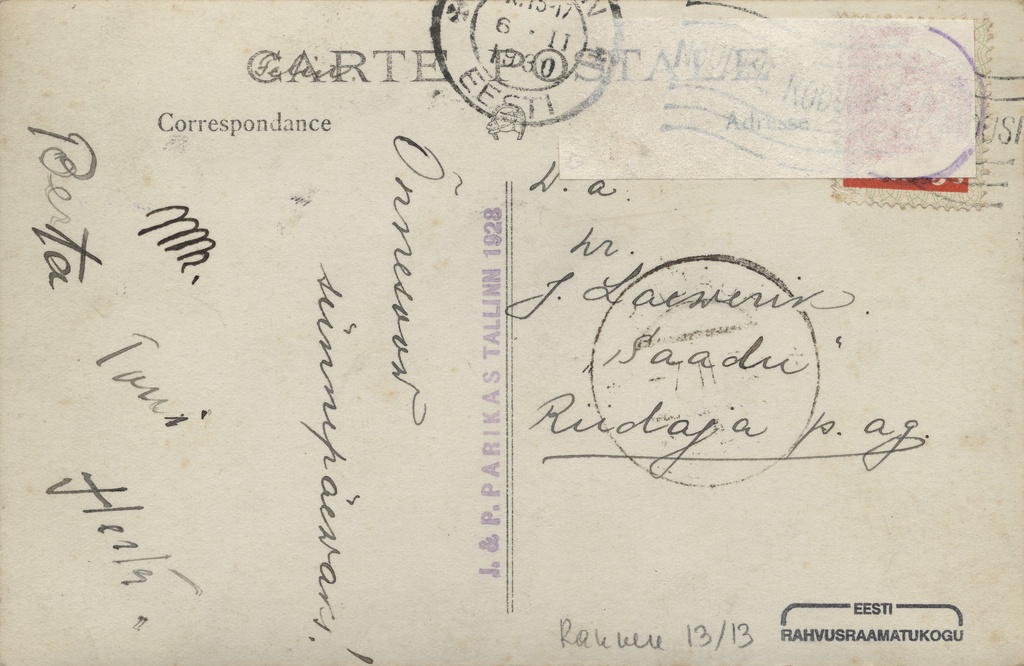 CARTE POSTALE
Correspondance
Adresse
6 . II
1930
EESTI
Õnnesoov
sünnipäevars,
Berta
J. & P. PARIKAS TALLINN 1928
H. a.
hr.
J. Laewerik
„Saadu“
Riidaja p. ag.
Rakvere 13/13
EESTI
RAHVUSRAAMATUKOGU